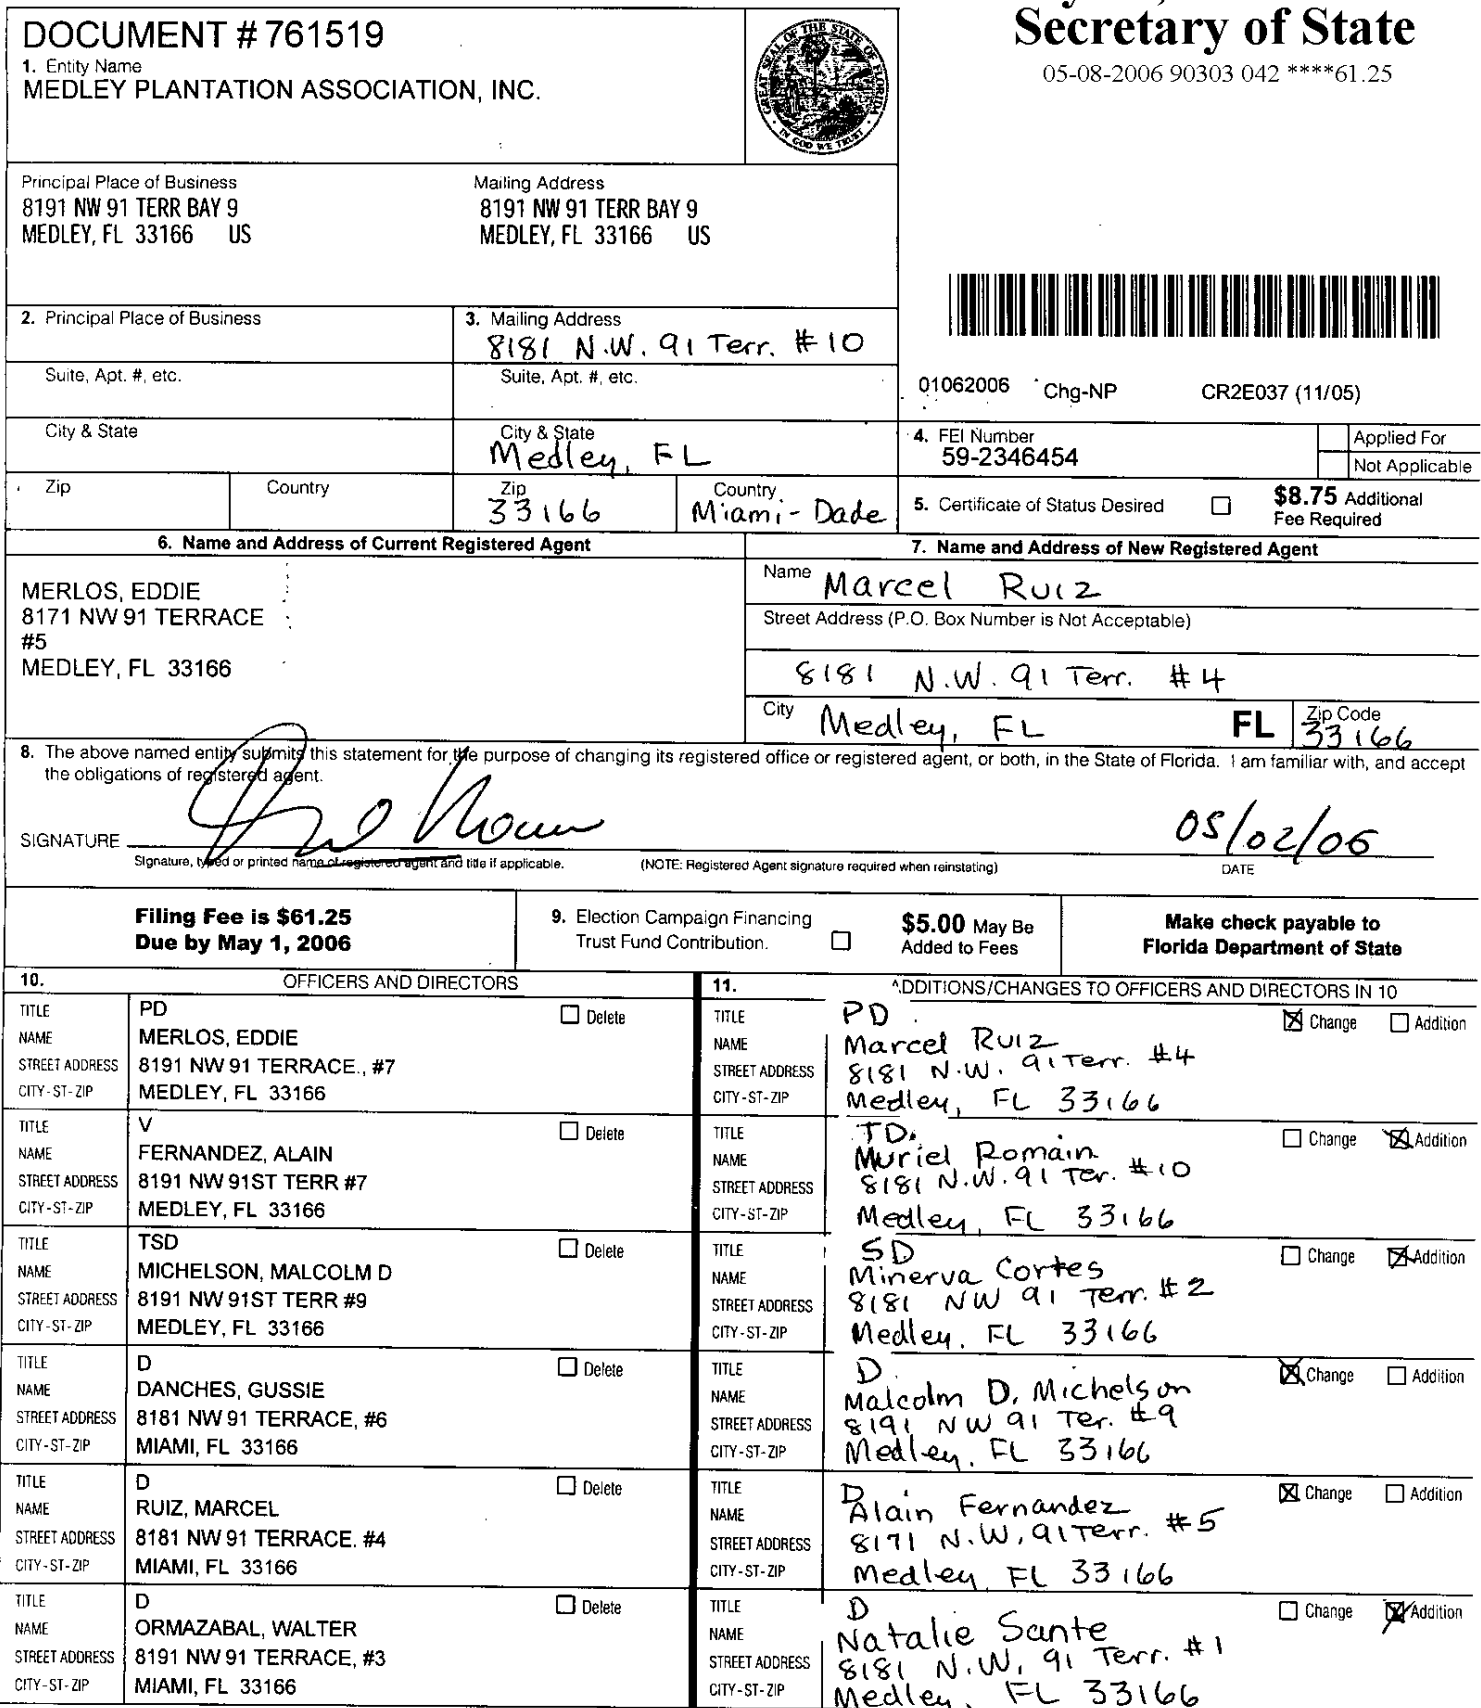 DOCUMENT # 761519
1. Entity Name
MEDLEY PLANTATION ASSOCIATION, INC.
GREAT SEAL OF THE STATE OF FLORIDA
IN GOD WE TRUST
Secretary of State
05-08-2006 90303 042 ****61.25
Principal Place of Business
8191 NW 91 TERR BAY 9
MEDLEY, FL 33166 US
Mailing Address
8191 NW 91 TERR BAY 9
MEDLEY, FL 33166 US
2. Principal Place of Business
3. Mailing Address
8181 N.W. 91 Terr. #10
Suite, Apt. #, etc.
Suite, Apt. #, etc.
01062006 Chg-NP CR2E037 (11/05)
City & State
City & State
Medley, FL
4. FEI Number
59-2346454
Applied For
Not Applicable
Zip
Country
Zip
33166
Country
Miami-Dade
5. Certificate of Status Desired
$8.75 Additional
Fee Required
6. Name and Address of Current Registered Agent
MERLOS, EDDIE
8171 NW 91 TERRACE
#5
MEDLEY, FL 33166
7. Name and Address of New Registered Agent
Name Marcel Ruiz
Street Address (P.O. Box Number is Not Acceptable)
8181 N.W. 91 Terr. #4
City Medley, FL FL Zip Code
33166
8. The above named entity submits this statement for the purpose of changing its registered office or registered agent, or both, in the State of Florida. I am familiar with, and accept
the obligations of registered agent.
SIGNATURE
05/02/06
Signature, typed or printed name of registered agent and title if applicable. (NOTE: Registered Agent signature required when reinstating) DATE
Filing Fee is $61.25
Due by May 1, 2006
9. Election Campaign Financing
Trust Fund Contribution.
$5.00 May Be
Added to Fees
Make check payable to
Florida Department of State
10. OFFICERS AND DIRECTORS
TITLE PD Delete
NAME MERLOS, EDDIE
STREET ADDRESS 8191 NW 91 TERRACE., #7
CITY-ST-ZIP MEDLEY, FL 33166
TITLE V Delete
NAME FERNANDEZ, ALAIN
STREET ADDRESS 8191 NW 91ST TERR #7
CITY-ST-ZIP MEDLEY, FL 33166
TITLE TSD Delete
NAME MICHELSON, MALCOLM D
STREET ADDRESS 8191 NW 91ST TERR #9
CITY-ST-ZIP MEDLEY, FL 33166
TITLE D Delete
NAME DANCHES, GUSSIE
STREET ADDRESS 8181 NW 91 TERRACE, #6
CITY-ST-ZIP MIAMI, FL 33166
TITLE D Delete
NAME RUIZ, MARCEL
STREET ADDRESS 8181 NW 91 TERRACE. #4
CITY-ST-ZIP MIAMI, FL 33166
TITLE D Delete
NAME ORMAZABAL, WALTER
STREET ADDRESS 8191 NW 91 TERRACE, #3
CITY-ST-ZIP MIAMI, FL 33166
11. ADDITIONS/CHANGES TO OFFICERS AND DIRECTORS IN 10
TITLE PD Change Addition
NAME Marcel Ruiz
STREET ADDRESS 8181 N.W. 91 Terr. #4
CITY-ST-ZIP Medley, FL 33166
TITLE TD. Change Addition
NAME Muriel Romain
STREET ADDRESS 8181 N.W. 91 Ter. #10
CITY-ST-ZIP Medley, FL 33166
TITLE SD Change Addition
NAME Minerva Cortes
STREET ADDRESS 8181 NW 91 Terr. #2
CITY-ST-ZIP Medley, FL 33166
TITLE D Change Addition
NAME Malcolm D. Michelson
STREET ADDRESS 8191 NW 91 Ter. #9
CITY-ST-ZIP Medley, FL 33166
TITLE D Change Addition
NAME Alain Fernandez
STREET ADDRESS 8171 N.W. 91 Terr. #5
CITY-ST-ZIP Medley FL 33166
TITLE D Change Addition
NAME Natalie Sante
STREET ADDRESS 8181 N.W. 91 Terr. #1
CITY-ST-ZIP Medley, FL 33166